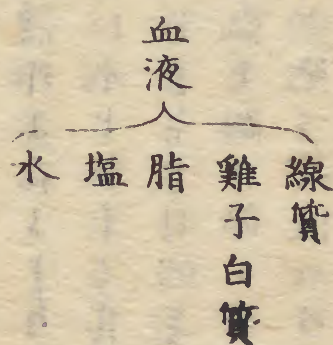 血液
線質
雞子白質
脂
塩
水